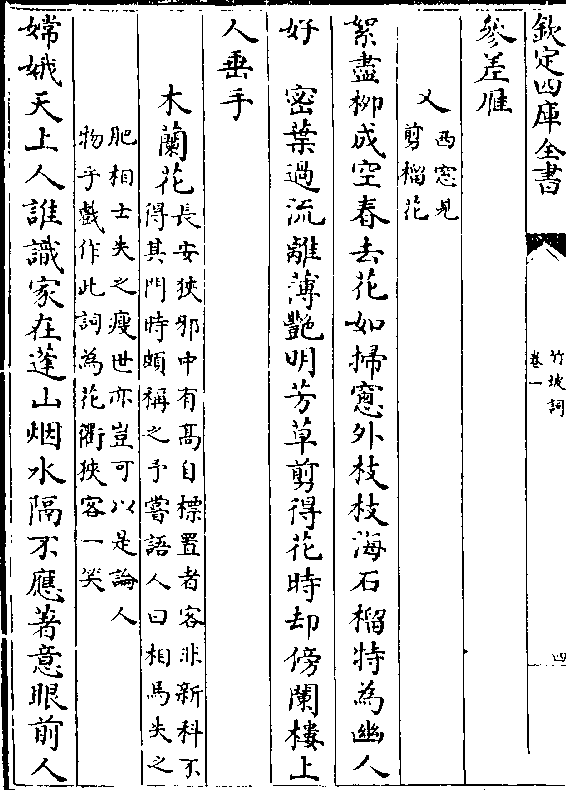 欽定四庫全書
竹坡詞
卷一
四
參差雁
又西窓見
剪榴花
絮盡栁成空春去花如掃窓外枝枝海石榴特為幽人
好　密葉過流離薄艶明芳草剪得花時却傍闌樓上
人垂手
木蘭花長安狹邪中有髙自標置者客非新科不
得其門時頗稱之予嘗語人曰相馬失之
肥相士失之瘦世亦豈可以是論人
物乎戲作此詞為花衢狹客一笑
嫦娥天上人誰識家在蓬山烟水隔不應著意眼前人